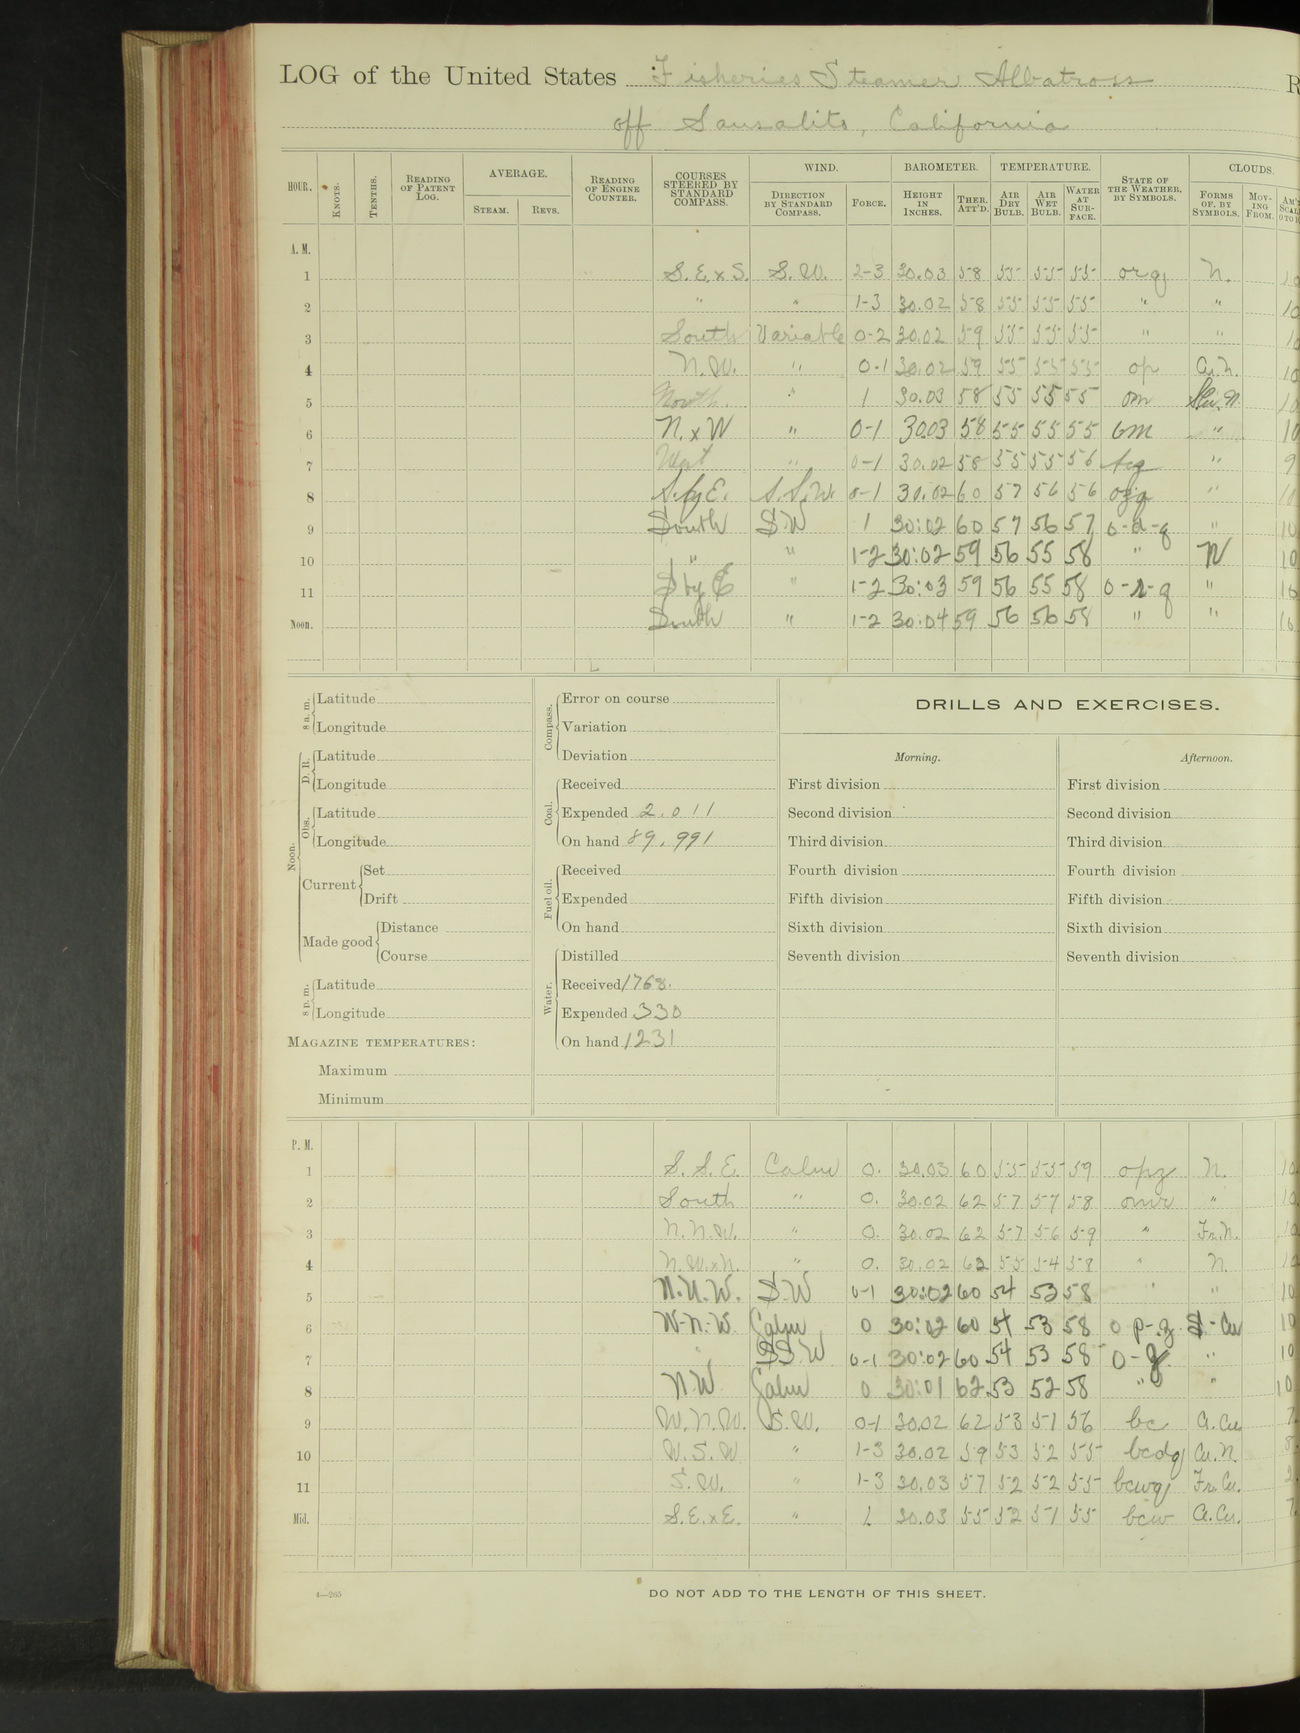 LOG of the United States Fisheries Steamer Albatross R
off Sausalito, California
HOUR. KNOTS. TENTHS. READING OF PATENT LOG. AVERAGE. STEAM. REVS. READING OF ENGINE COUNTER. COURSES STEERED BY STANDARD COMPASS. WIND. DIRECTION BY STANDARD COMPASS. FORCE. BAROMETER. HEIGHT IN INCHES. THER. ATT'D. TEMPERATURE. AIR DRY BULB. AIR WET BULB. WATER AT SUR-FACE. STATE OF THE WEATHER, BY SYMBOLS. CLOUDS. FORMS OF, BY SYMBOLS. MOV-ING FROM.
A. M.
1 S. E. x S. S. W. 2-3 30.03 58 55 55 55 orq N. 10
2 " " 1-3 30.02 58 55 55 55 " " 10
3 South Variable 0-2 30.02 59 55 55 55 " " 10
4 N. W. " 0-1 30.02 59 55 55 55 op Cu. N. 10
5 North. " 1 30.03 58 55 55 55 om 10
6 N. x W " 0-1 30.03 58 55 55 55 om " 10
7 West " 0-1 30.02 58 55 55 56 " 9
8 S. by E. S. S. W. 0-1 30.02 60 57 56 56 " 10
9 South S. W 1 30:02 60 57 56 57 o-d-q " 10
10 " " 1-2 30:02 59 56 55 58 " N 10
11 S by E " 1-2 30:03 59 56 55 58 o-r-q " 10
Noon. South " 1-2 30:04 59 56 56 58 " " 10
8 a. m. Latitude
Longitude
Noon. D. R. Latitude
Longitude
Obs. Latitude
Longitude
Current Set
Drift
Made good Distance
Course
8 p. m. Latitude
Longitude
MAGAZINE TEMPERATURES:
Maximum
Minimum
Compass. Error on course
Variation
Deviation
Coal. Received
Expended 2.011
On hand 89,991
Fuel oil. Received
Expended
On hand
Water. Distilled
Received 1768.
Expended 330
On hand 1231
DRILLS AND EXERCISES.
Morning.
First division
Second division
Third division
Fourth division
Fifth division
Sixth division
Seventh division
Afternoon.
First division
Second division
Third division
Fourth division
Fifth division
Sixth division
Seventh division
P. M.
1 S. S. E. Calm 0. 30.03 60 55 55 59 opz N. 10
2 South " 0. 30.02 62 57 57 58 omr " 10
3 N. N. W. " 0. 30.02 62 57 56 59 " Fr. N. 10
4 N. W. x N. " 0. 30.02 62 55 54 58 " N. 10
5 N. N. W. S. W 0-1 30:02 60 54 53 58 " " 10
6 W-N-W Calm 0 30:02 60 54 53 58 o p-z S-Cu 10
7 " SSW 0-1 30:02 60 54 53 58 " 10
8 N. W Calm 0 30:01 62 53 52 58 " " 10
9 W. N. W. S. W. 0-1 30.02 62 53 51 56 bc A. Cu. 7
10 W. S. W " 1-3 30.02 59 53 52 55 bcdq Cu. N. 8
11 S. W. " 1-3 30.03 57 52 52 55 bcwq Fr. Cu. 2
Mid. S. E. x E. " 1 30.03 55 52 51 55 bcw A. Cu. 7
4—265
DO NOT ADD TO THE LENGTH OF THIS SHEET.